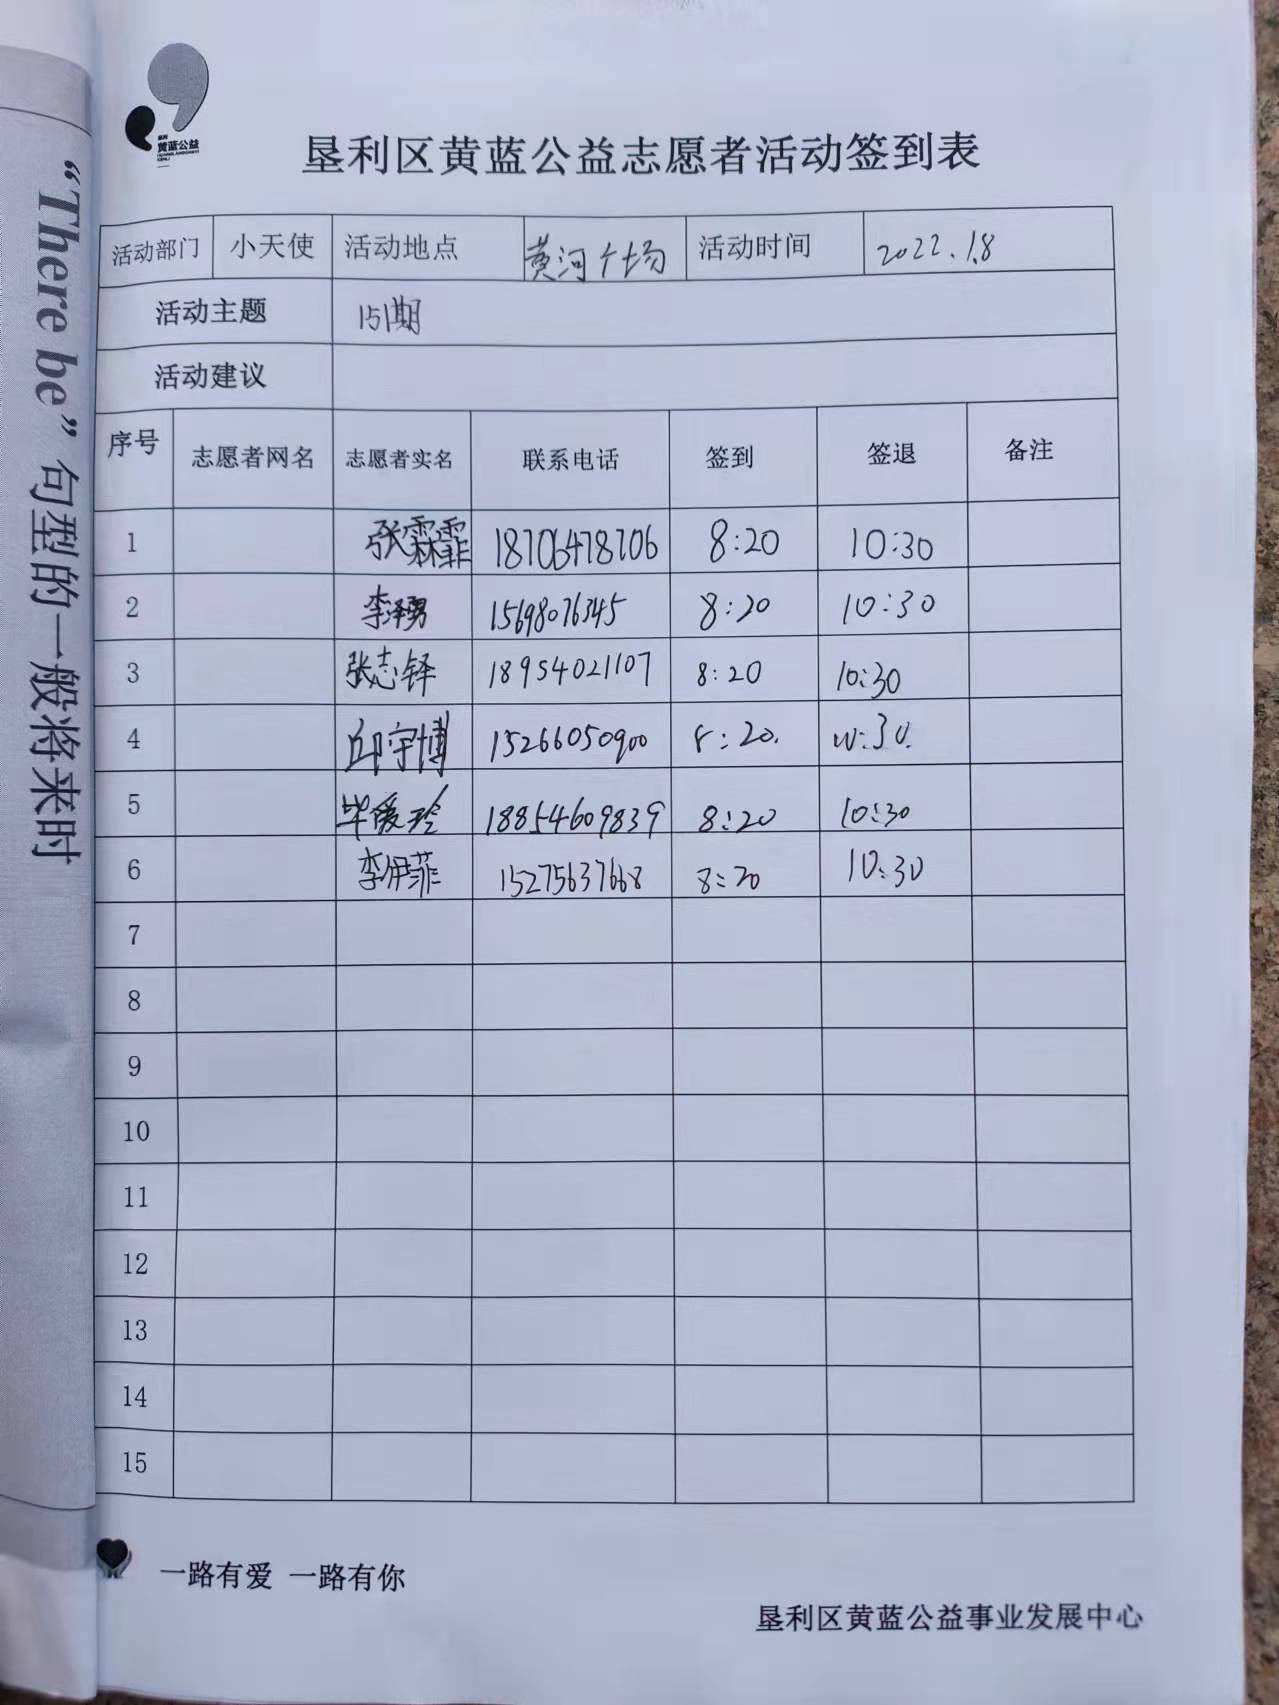 垦利
黄蓝公益
垦利区黄蓝公益志愿者活动签到表
活动部门 小天使 活动地点 黄河广场 活动时间 2022.1.8
活动主题 151期
活动建议
序号 志愿者网名 志愿者实名 联系电话 签到 签退 备注
1 张霖霏 18706478706 8:20 10:30
2 李泽勇 15698076345 8:20 10:30
3 张志铎 18954021107 8:20 10:30
4 邱宇博 15266050900 8:20. 10:30.
5 毕爱玲 18854609839 8:20 10:30
6 李伊菲 15275637668 8:20 10:30
7
8
9
10
11
12
13
14
15
一路有爱 一路有你
垦利区黄蓝公益事业发展中心
“There be” 句型的一般将来时